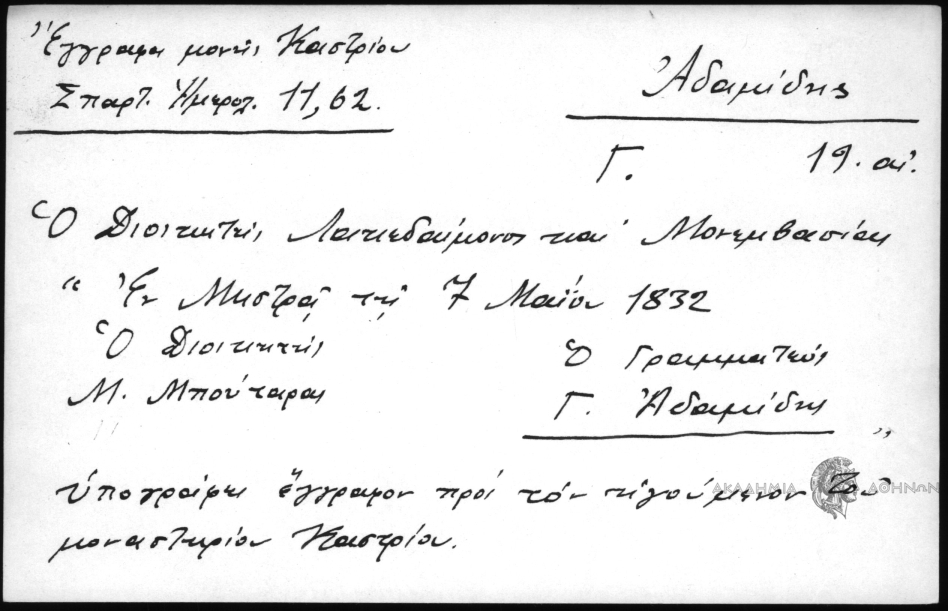 Ἔγγραφα μονῆς Καστρίου
Σπαρτ. Ἡμερολ. 11, 62.
Ἀδαμίδης
Γ. 19. αἰ.
Ὁ Διοικητὴς Λακεδαίμονος καὶ Μονεμβασίας
“ Ἐν Μιστρᾷ τῇ 7 Μαΐου 1832
Ὁ Διοικητής Ὁ Γραμματεύς
Μ. Μπούταρας Γ. Ἀδαμίδης ”
ὑπογράφει ἔγγραφον πρὸς τὸν ἡγούμενον τοῦ
μοναστηρίου Καστρίου.
ΑΚΑΔΗΜΙΑ ΑΘΗΝΩΝ